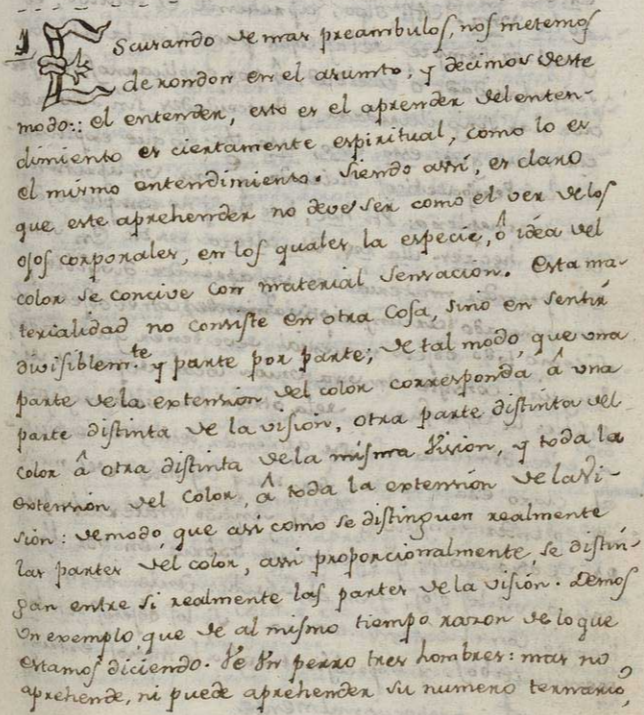 1 Escusando de mas preambulos, nos metemos
de rondon en el asunto, y decimos deste
modo:: el entender, esto es el aprender del enten-
dimiento es ciertamente espiritual, como lo es
el mismo entendimiento. Siendo assi, es claro
que este aprehender no deve ser como el ver de los
ojos corporales, en los quales la especie, ô idéa del
color se concive con material sensación. Esta ma-
terialidad no consiste en otra cosa, sino en sentir
divisiblem.te y parte por parte; de tal modo que una
parte de la extension del color corresponda â una
parte distinta de la visión, otra parte distinta del
color â otra distinta de la misma Visión, y toda la
extension del color, â toda la extension de la Vi-
sión: demodo, que asi como se distinguen realmente
las partes del color, assi proporcionalmente se distin-
gan entre si realmente las partes de la visión. Demos
Un exemplo, que de al mismo tiempo razon de lo que
estamos diciendo. Ve Un perro tres hombres: mas no
aprehende, ni puede aprehender su numero ternario,